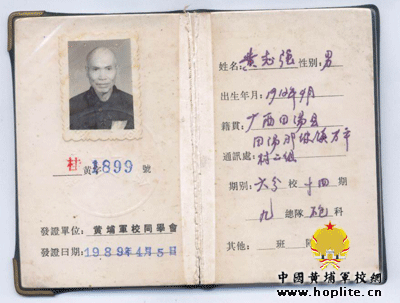 桂黄字1899號
發證單位：黄埔軍校同學會
發證日期：1989年4月5日
姓名：黄志强 性别：男
出生年月：1912年4月
籍貫：广西田陽县
田陽那坡镇万平
通訊處：村二组
期别：六分校十四期
九總隊 砲科
其他： 班 隊
中國黄埔軍校網
www.hoplite.cn